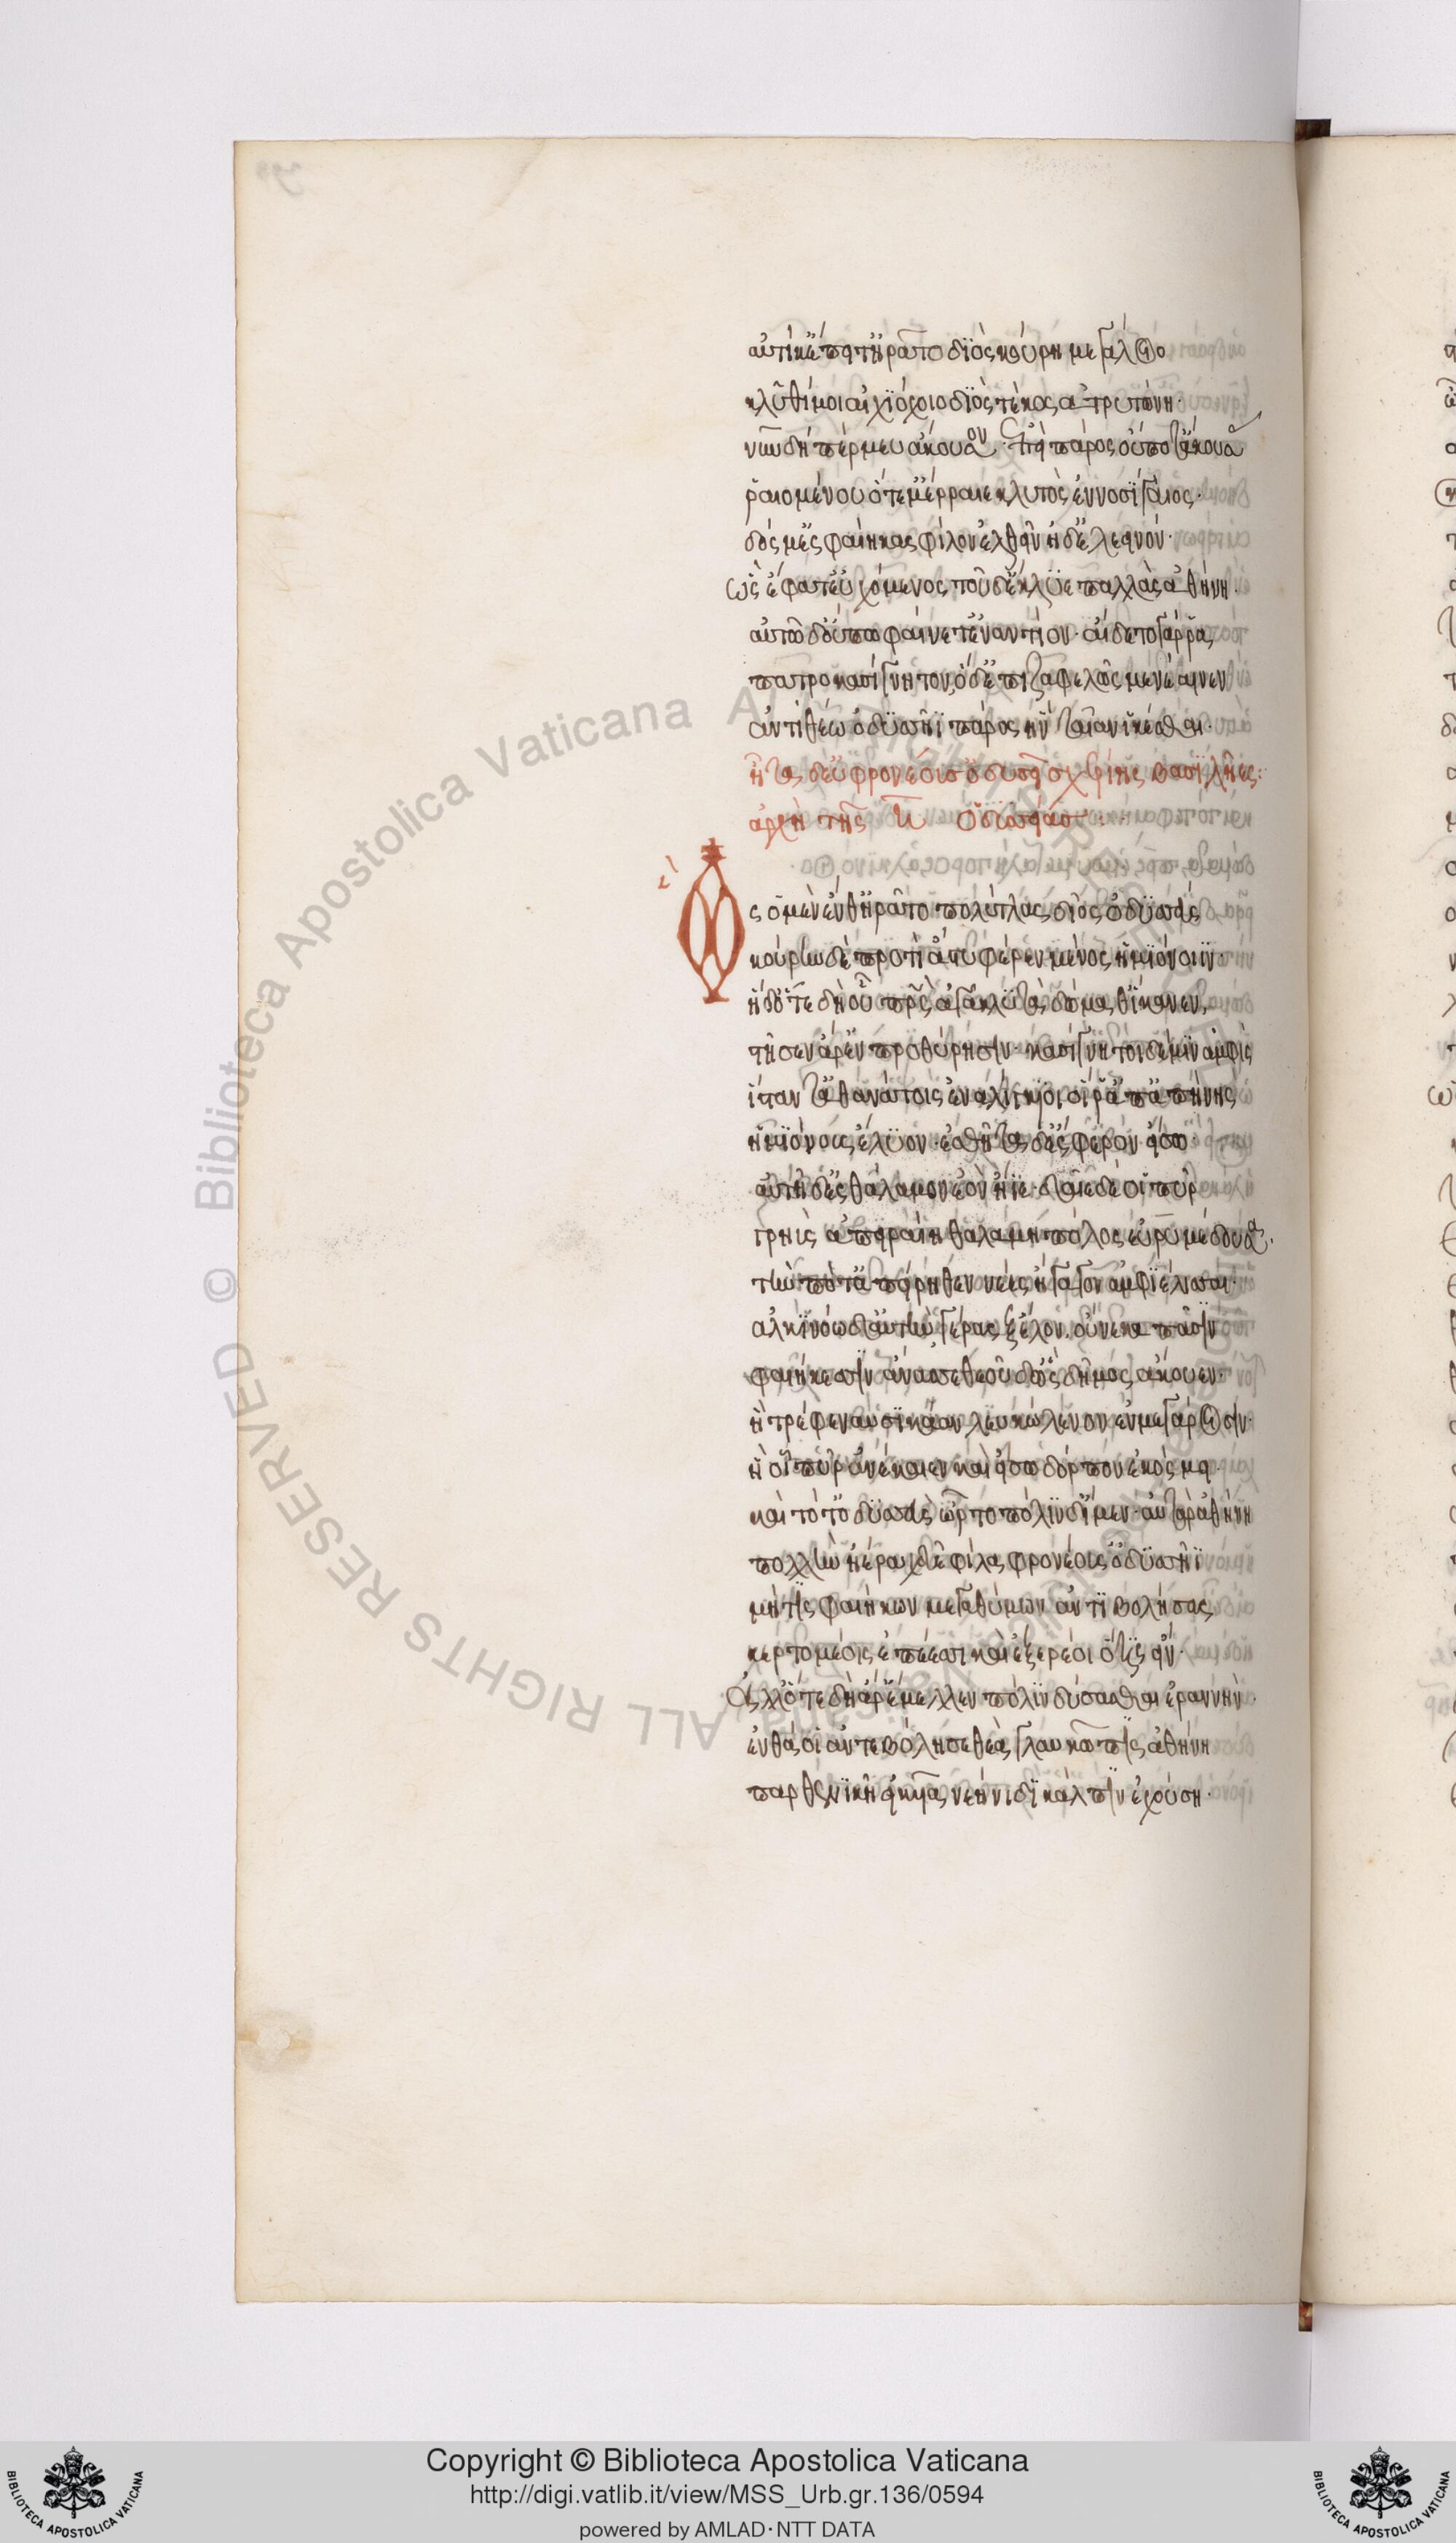 αὐτίκ' ἔπειτ' ἠρᾶτο διὸς κούρη μεγάλοιο
κλῦθί μοι αἰγιόχοιο διὸς τέκος ἀτρυτώνη·
νῦν δή πέρ μευ ἄκουσον· ἐπεὶ πάρος οὔποτ' ἄκουσας
ῥαιομένου ὅτε μ' ἔρραιε κλυτὸς ἐννοσίγαιος·
δός μ' ἐς φαίηκας φίλον ἐλθεῖν ἠδ' ἐλεεινόν·
ὣς ἔφατ' εὐχόμενος τοῦ δ' ἔκλυε παλλὰς ἀθήνη·
αὐτῶ δ' οὔπω φαίνετ' ἐναντίον· αἴδετο γάρ ρα
πατροκασίγνητον, ὁ δ' ἐπιζαφελῶς μενέαινεν
ἀντιθέω ὀδυσῆϊ πάρος ἣν γαῖαν ἱκέσθαι·
ἀρχὴ τῆς
ς ὁ μὲν ἔνθ' ἠρᾶτο πολύτλας δῖος ὀδυσσεύς
κούρην δὲ προτὶ ἄστυ φέρεν μένος ἡμιόνοιϊν·
ἡ δ' ὅτε δὴ οὗ πρὸς ἀγακλυτὰ δώμαθ' ἵκανεν,
στῆσεν ἄρ' ἐν προθύρησιν· κασίγνητοι δέ μιν ἀμφὶς
ἵσταντ' ἀθανάτοις ἐναλίγκιοι οἵ ῥ' ἀπ' ἀπήνης
ἡμιόνους ἔλυον· ἐσθῆτα δ' ἔσφερον εἴσω·
αὐτὴ δ' ἐς θάλαμον ἑὸν ἤϊε· δαῖε δέ οἱ πῦρ
γρηῒς ἀπειραίη θαλαμηπόλος εὐρυμέδουσα·
τήν ποτ' ἀπείρηθεν νέες ἤγαγον ἀμφιέλισσαι·
ἀλκινόω δ' αὐτὴν γέρας ἔξελον. οὕνεκα πᾶσιν
φαιήκεσσιν ἄνασσε θεοῦ δ' ὣς δῆμος ἄκουεν·
ἣ τρέφε ναυσικάαν λευκώλενον ἐν μεγάροισιν·
ἥ οἱ πῦρ ἀνέκαιεν καὶ εἴσω δόρπον ἐκόσμει
καὶ τότ' ὀδυσσεὺς ὦρτο πόλινδ' ἴμεν· αὐτὰρ ἀθήνη
πολλὴν ἠέρα χεῦε φίλα φρονέουσ' ὀδυσῆϊ
μήτις φαιήκων μεγαθύμων ἀντιβολήσας
κερτομέοι ἐπέεσσι καὶ ἐξερέοι ὅτις εἴη·
ἀλλ' ὅτε δὴ ἄρ' ἔμελλεν πόλιν δύσασθαι ἐραννὴν·
ἔνθά οἱ ἀντεβόλησε θεὰ γλαυκῶπις ἀθήνη
παρθενικῆ εἰκυῖα νεήνιδι κάλπιν ἐχούση·
© Biblioteca Apostolica Vaticana ALL RIGHTS RESERVED
Copyright © Biblioteca Apostolica Vaticana
http://digi.vatlib.it/view/MSS_Urb.gr.136/0594
powered by AMLAD·NTT DATA
BIBLIOTECA APOSTOLICA VATICANA
BIBLIOTECA APOSTOLICA VATICANA